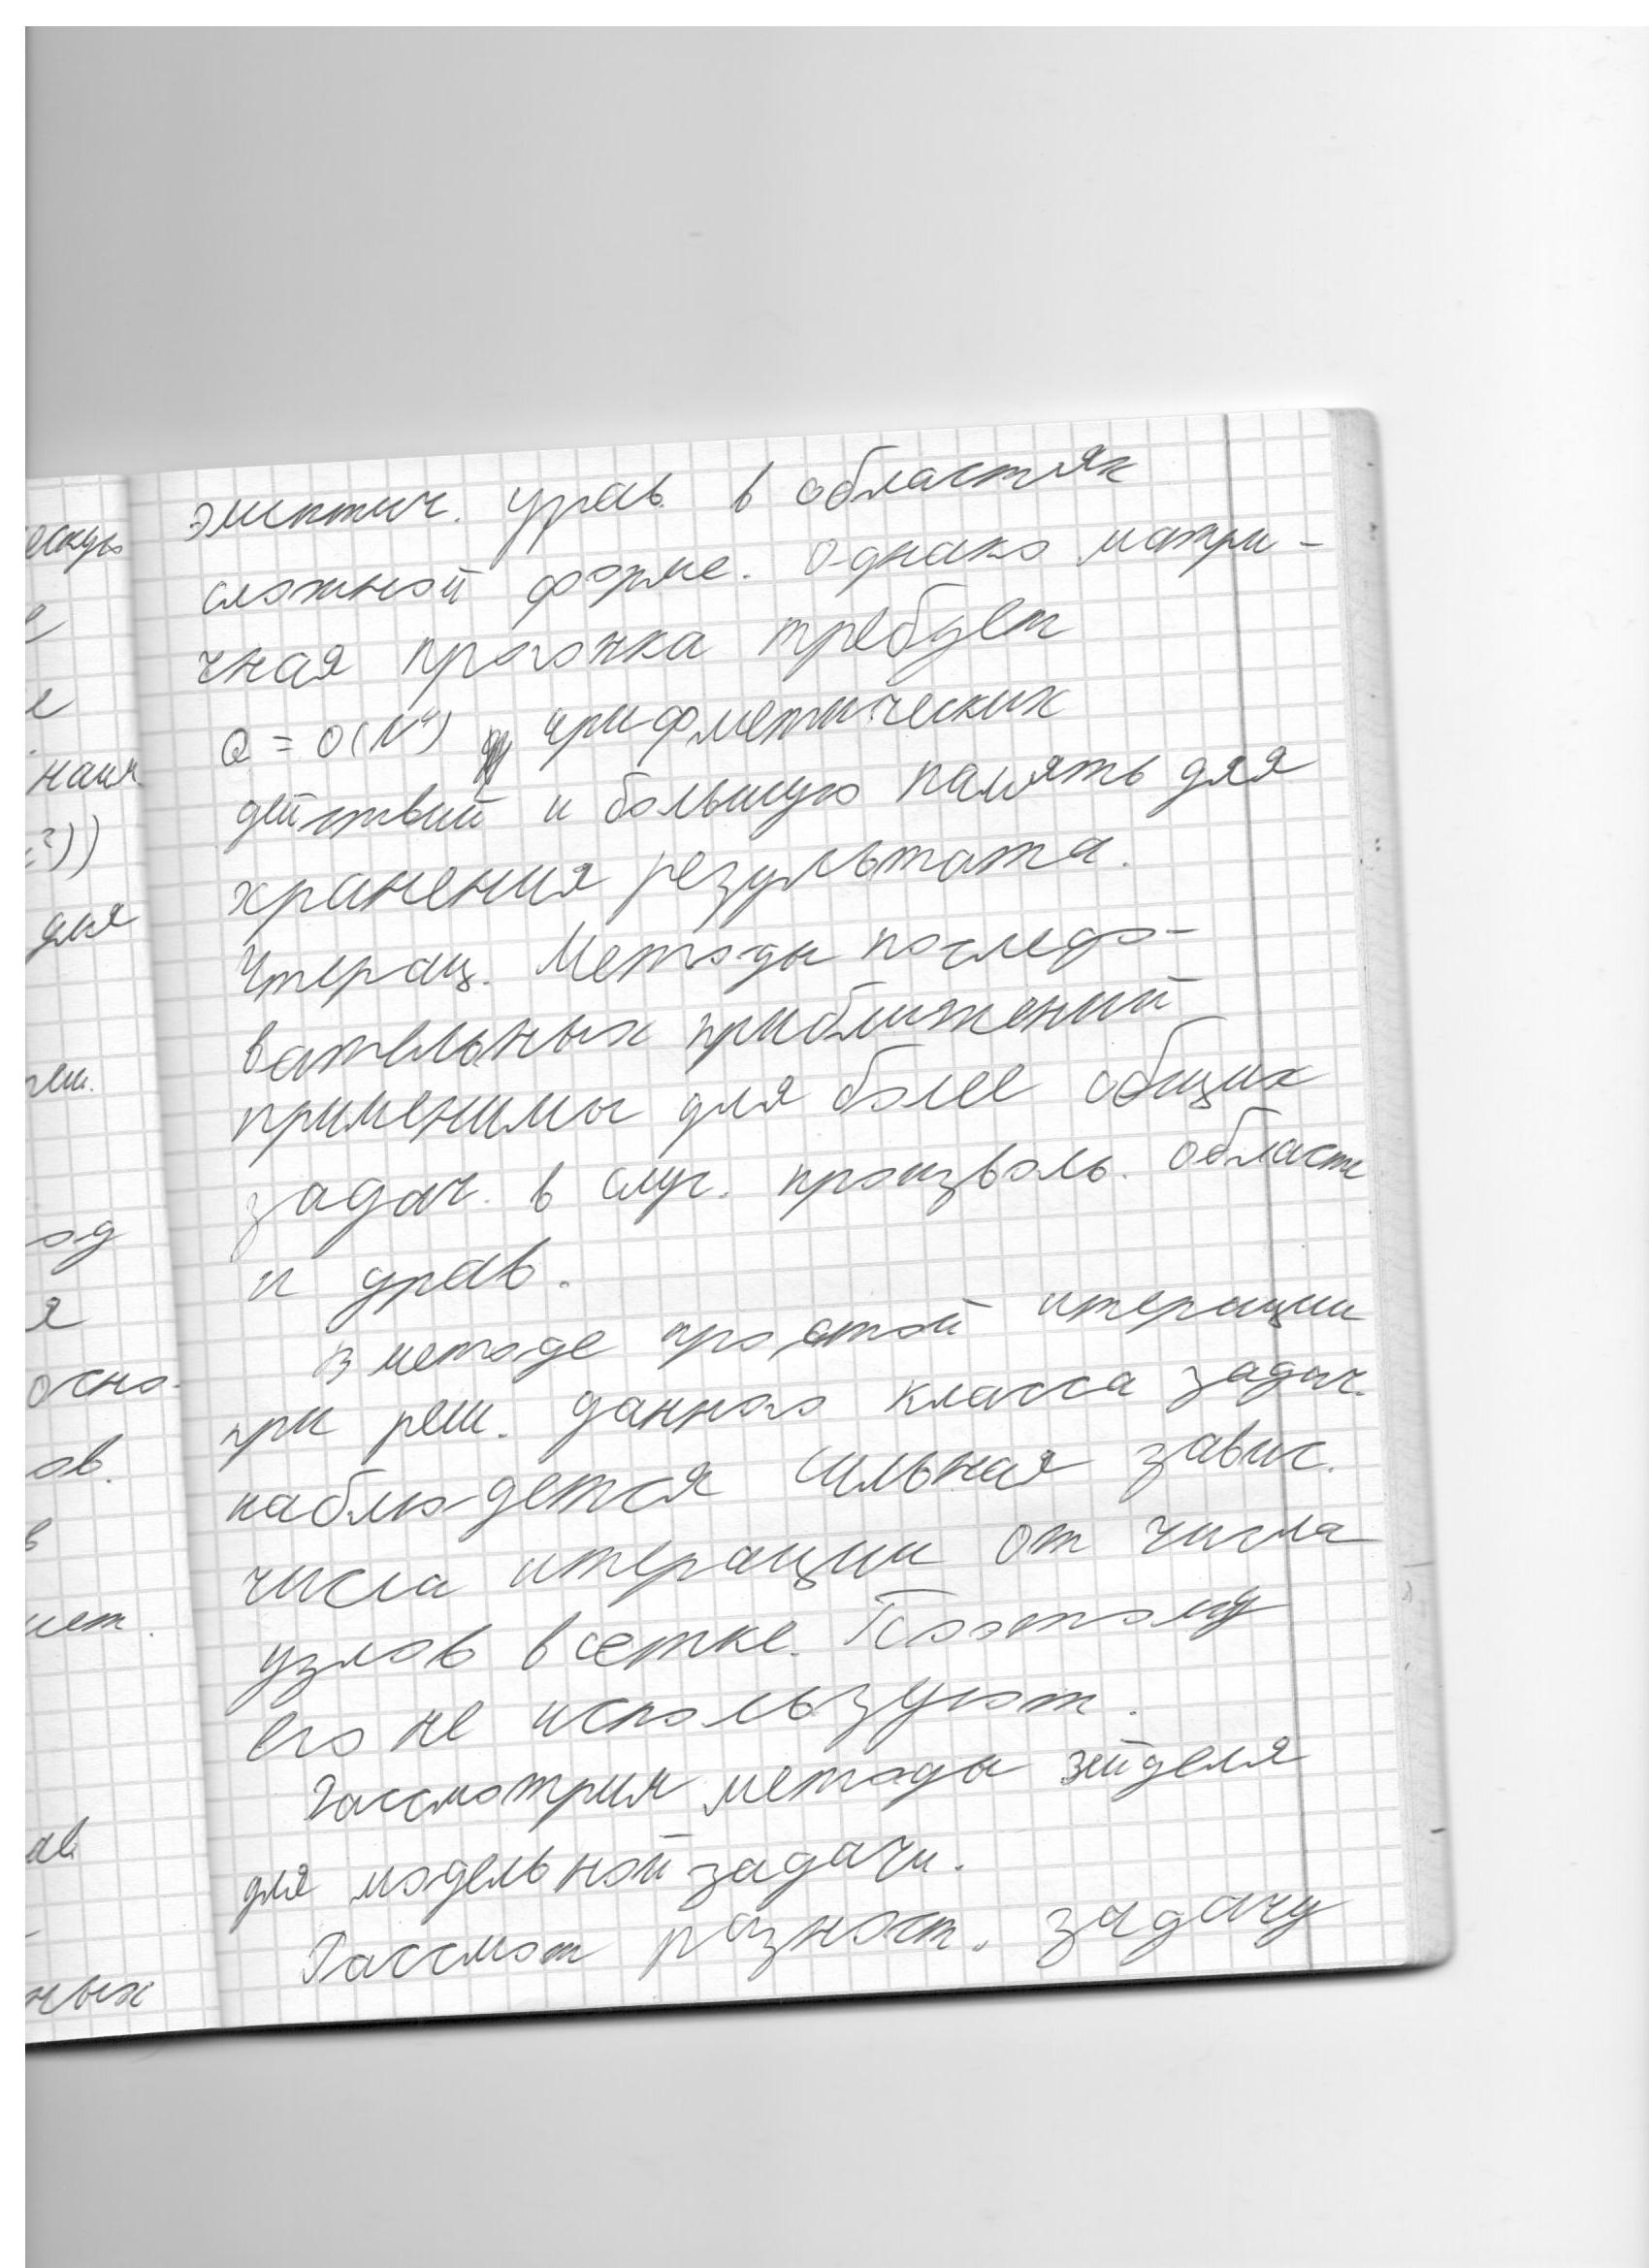 эликтич. урав. в областях
сложной форме. Однако матри-
чная прогонка требует
Q = O(N⁴) арифметических
действий и большую память для
хранения результата.
Итерац. Методы последо-
вательных приближений
применимы для более общих
задач. в случ. произволь. област
и урав.
В методе простой итерации
при реш. данного класса задач.
наблюдется сильная завис.
числа итерации от числа
узлов в сетке. Поэтому
его не используют.
Рассмотрим методы Зейделя
для модельной задачи.
Рассмот разност. задачу
наим.
²))
для
реш.
од
я
осно-
ов.
в
мет.
ав
ных